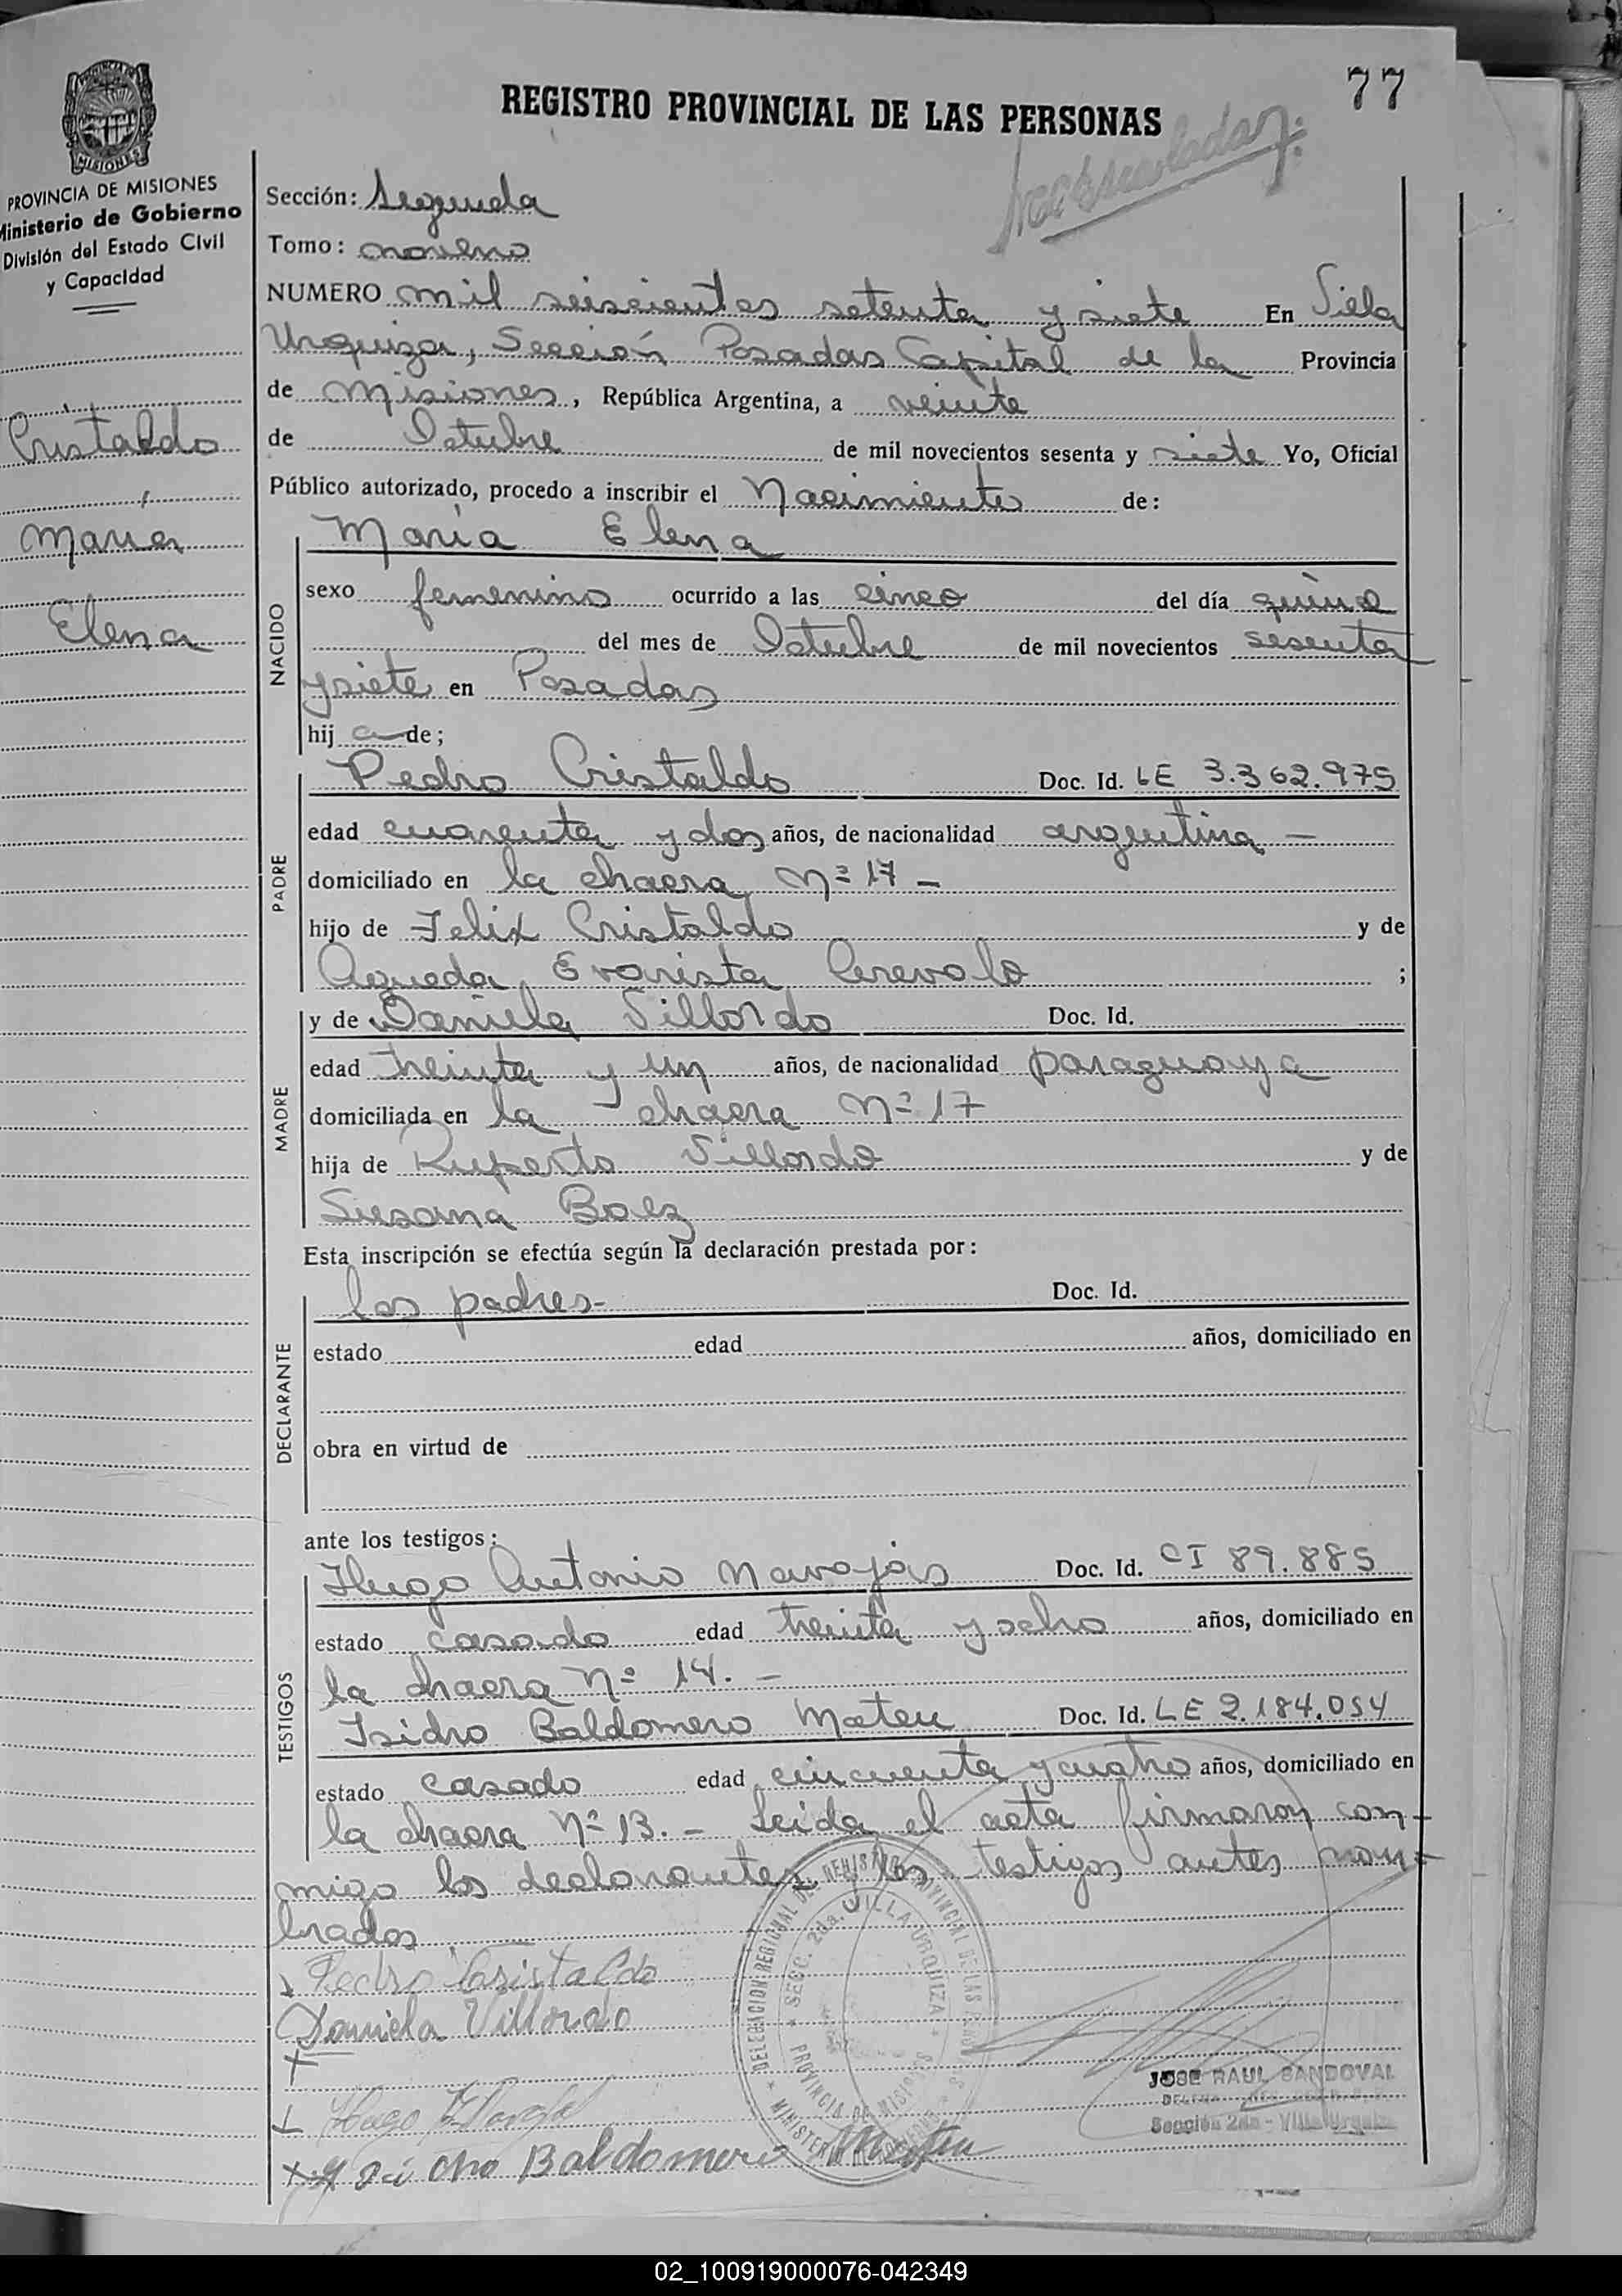 77
REGISTRO PROVINCIAL DE LAS PERSONAS
PROVINCIA DE MISIONES
Ministerio de Gobierno
División del Estado Civil
y Capacidad
Cristaldo
,
Maria
Elena
Sección: Segunda
Tomo: noveno
NUMERO mil seiscientos setenta y siete En Villa
Urquiza, Sección Posadas Capital de la Provincia
de Misiones, República Argentina, a veinte
de Octubre de mil novecientos sesenta y siete Yo, Oficial
Público autorizado, procedo a inscribir el Nacimiento de:
NACIDO
María Elena
sexo femenino ocurrido a las cinco del día quince
del mes de Octubre de mil novecientos sesenta
y siete en Posadas
hij a de;
PADRE
Pedro Cristaldo Doc. Id. LE 3.362.975
edad cuarenta y dos años, de nacionalidad argentina -
domiciliado en la chacra Nº 17 -
hijo de Felix Cristaldo y de
Agueda Evarista ;
MADRE
y de Daniela Villordo Doc. Id.
edad treinta y un años, de nacionalidad paraguaya
domiciliada en la chacra Nº 17
hija de Ruperto Villordo y de
Susana Baez
Esta inscripción se efectúa según la declaración prestada por:
DECLARANTE
los padres- Doc. Id.
estado edad años, domiciliado en
obra en virtud de
ante los testigos:
TESTIGOS
Hugo Antonio Navajas Doc. Id. CI 89.885
estado casado edad treinta y ocho años, domiciliado en
la chacra Nº 14. -
Isidro Baldomero Mateu Doc. Id. LE 2.184.054
estado casado edad cincuenta y cuatro años, domiciliado en
la chacra Nº 13. - Leida el acta firmaron con-
migo los declarantes y los testigos antes nom-
brados
Pedro Cristaldo
Daniela Villordo
Baldomero Mateu
SECC. 2da. VILLA URQUIZA
PROVINCIA DE MISIONES
JOSE RAUL SANDOVAL
Sección 2da - Villa Urquiza
02_100919000076-042349